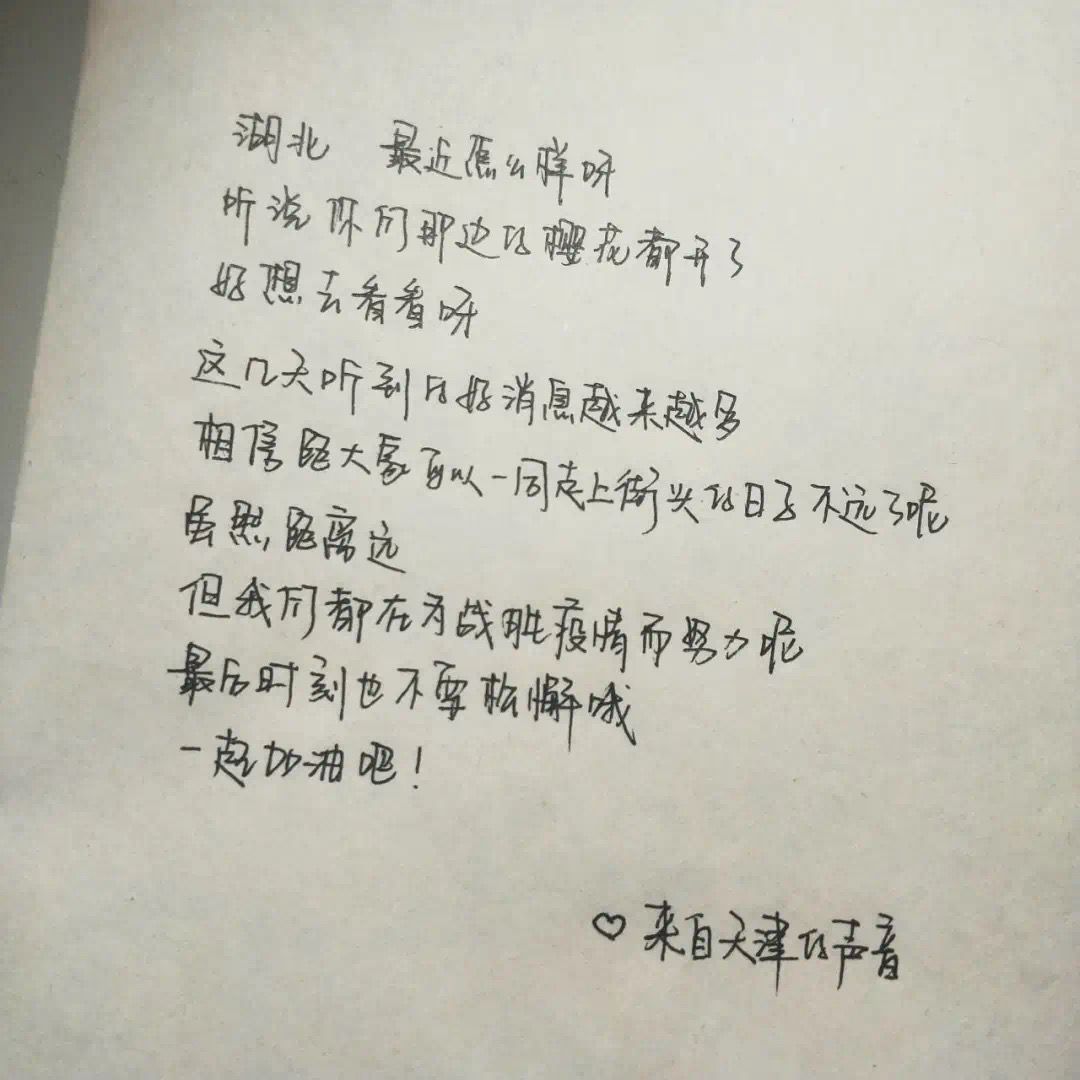 湖北 最近怎么样呀
听说你们那边的樱花都开了
好想去看看呀
这几天听到的好消息越来越多
相信距大家可以一同走上街头的日子不远了呢
虽然距离远
但我们都在为战胜疫情而努力呢
最后时刻也不要松懈哦
一起加油吧!
♡来自天津的声音